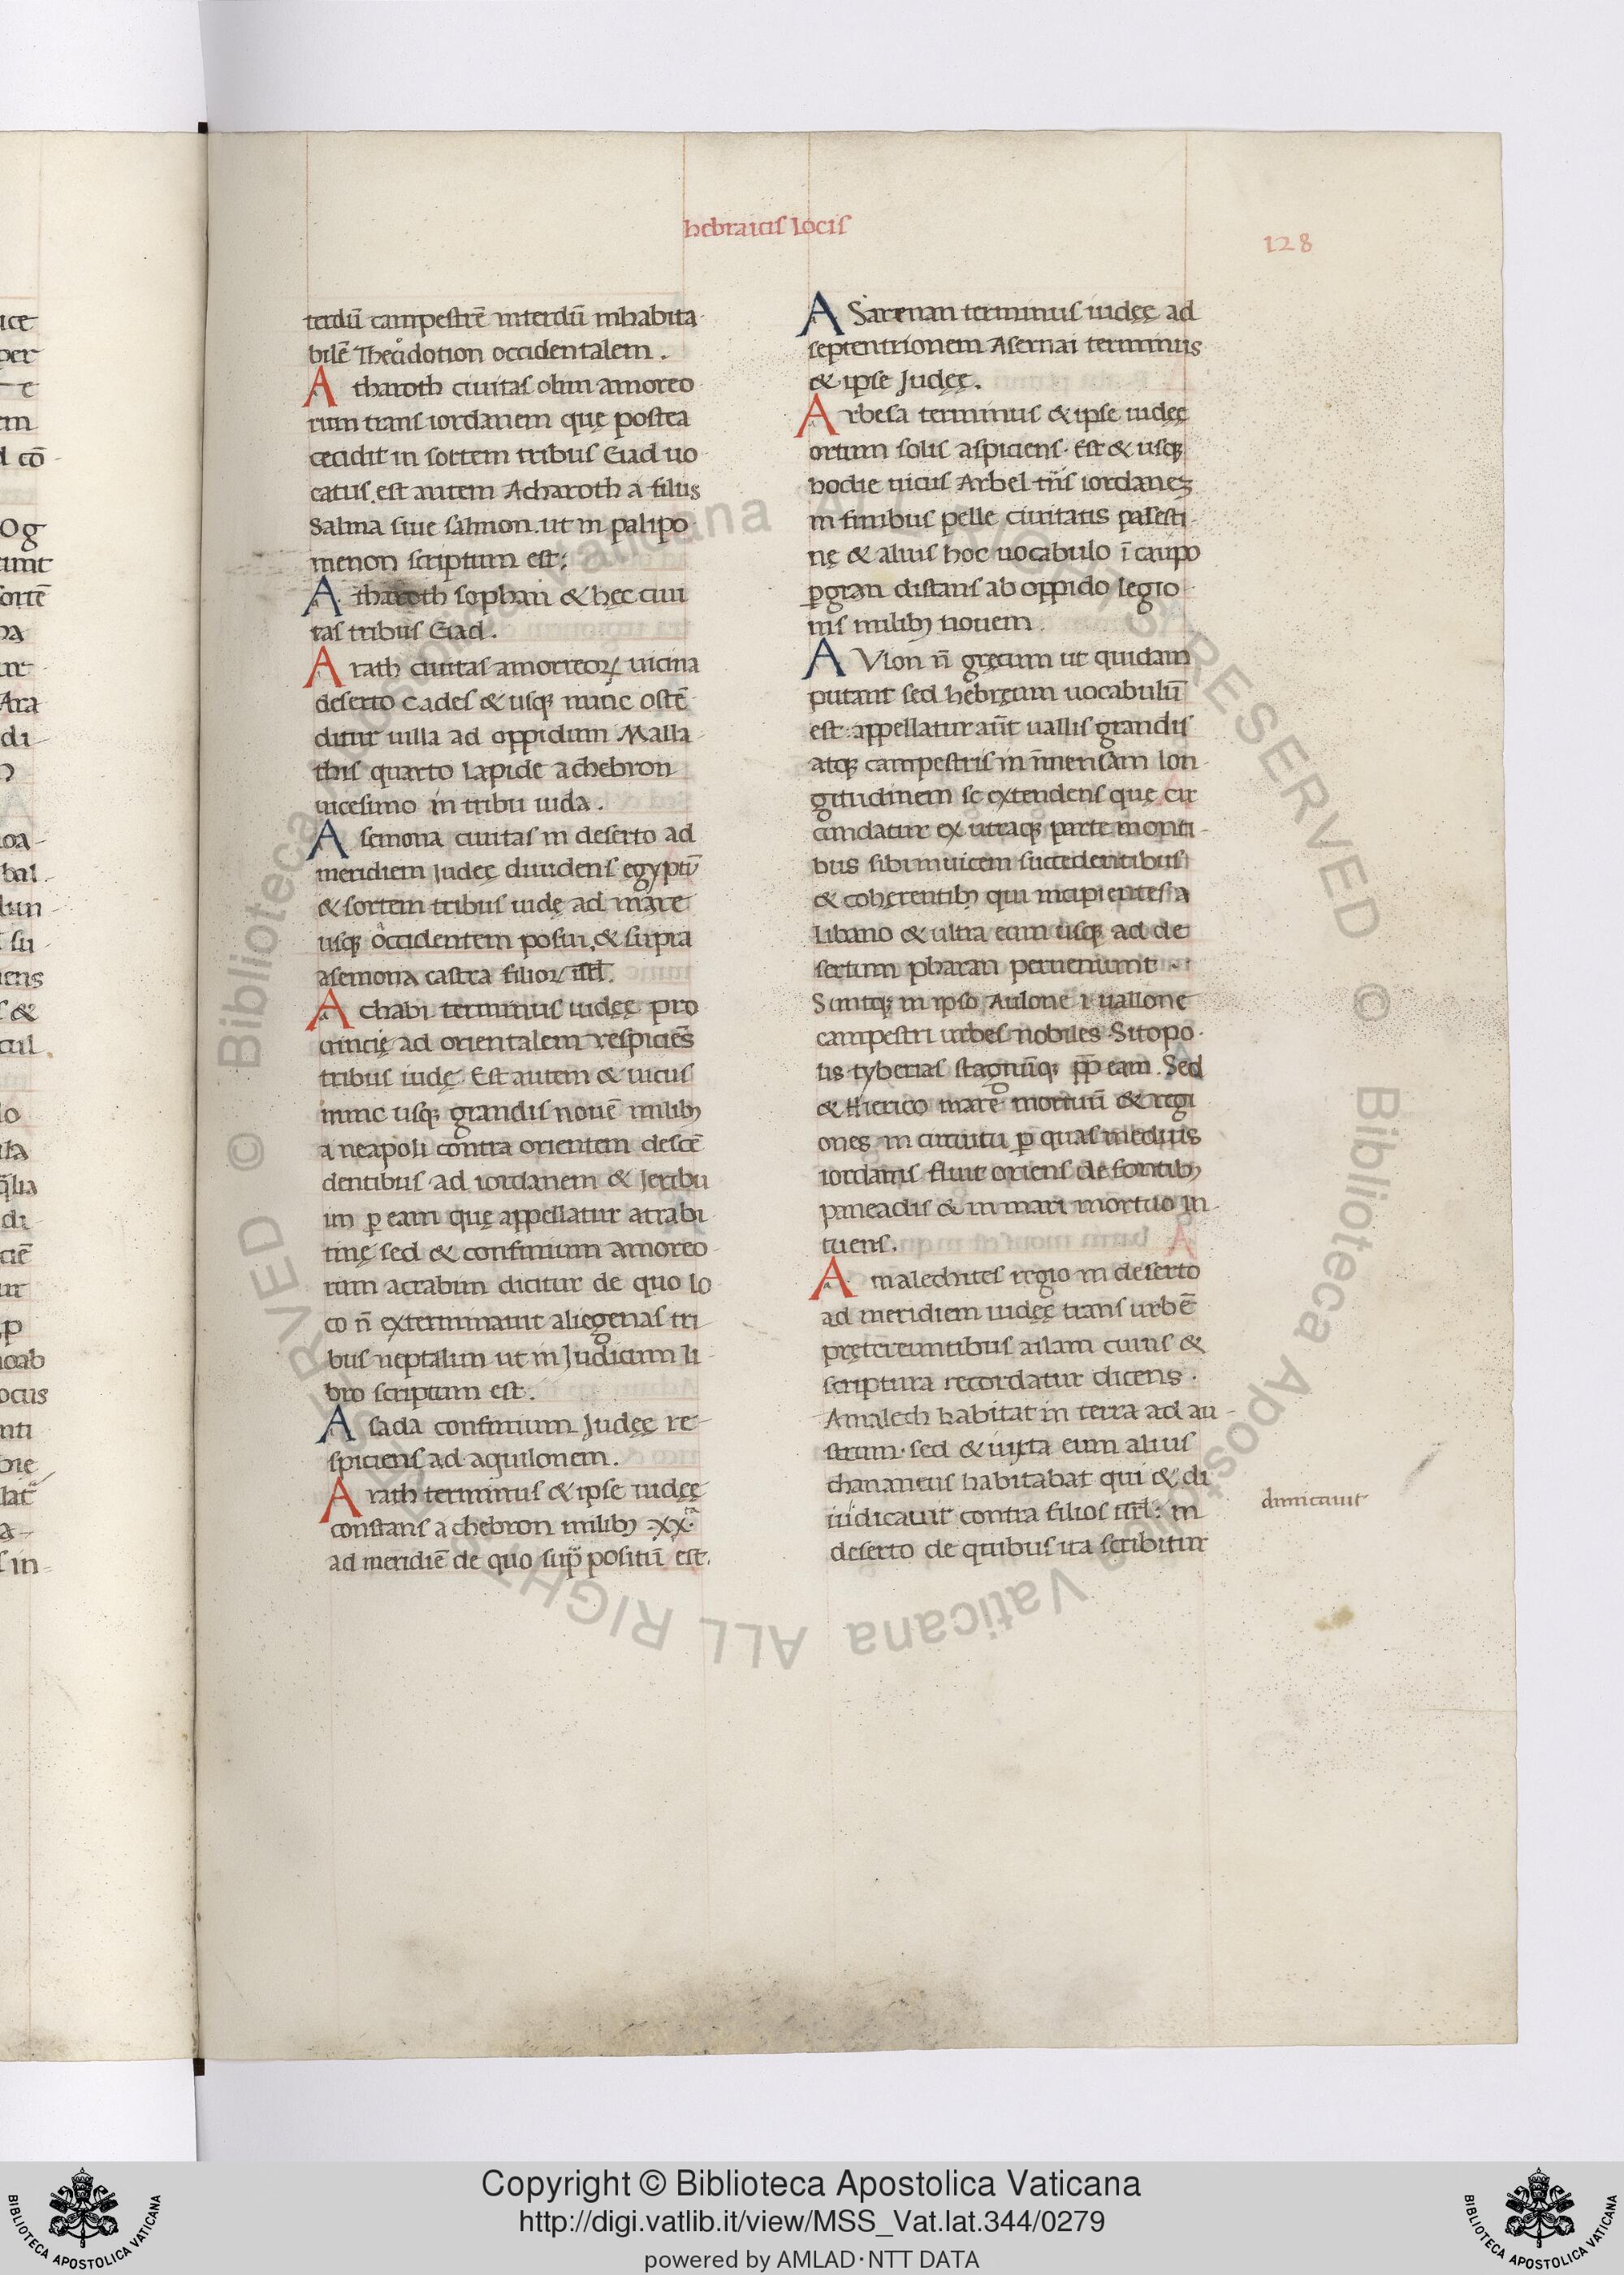 hebraicis locis
128
terdū campestrē interdū inhabita-
bilē Theodotion occidentalem.
Atharoth ciuitas olim amoreo-
rum trans iordanem quę postea
cecidit in sortem tribus Gad uo-
catus. est autem Acharoth a filiis
Salma siue salmon. ut in palipo-
menon scriptum est;
Atharoth sophan & hęc ciui-
tas tribus Gad.
Arath ciuitas amorreoꝝ uicina
deserto cades & usq; nunc ostē-
ditur uilla ad oppidum Malla-
this quarto lapide a chebron
uicesimo in tribu iuda.
Asemona ciuitas in deserto ad
meridiem Judęę diuidens egyptū
& sortem tribus iudę ad mare
usq; occidentem posui. & supra
asemona castra filioꝝ isrl.
Achabi terminus iudęę pro
uincię ad orientalem respiciēs
tribus iudę. Est autem & uicus
nunc usq; grandis nouē milibꝫ
a neapoli contra orientem descē-
dentibus ad iordanem & Jeribu
im ꝑ eam quę appellatur acrabi-
tinę sed & confinium amoreo-
rum acrabim dicitur de quo lo-
co n̄ exterminauit aliegenas tri-
bus neptalim ut in Judicum li-
bro scriptum est.
Asada confinium Judęę re-
spiciens ad aquilonem.
Arath terminus & ipse iudęę
constans a chebron milibꝫ .xx.
ad meridiē de quo supͣ positū est.
ASarenan terminus iudęę ad
septentrionem Asernai terminus
& ipse Judęę.
Arbesa terminus & ipse iudęę
ortum solis aspiciens. Est & usq;
hodie uicus Arbel trīs iordaneꝫ
in finibus pelle ciuitatis palesti-
nę & alius hoc uocabulo ī campo
ꝑgran distans ab oppido legio-
nis milibꝫ nouem.
AVlon n̄ gręcum ut quidam
putant sed hebręum uocabulū
est. appellatur aūt uallis grandis
atq; campestris in īmensam lon-
gitudinem se extendens quę cir
cundatur ex utraq; parte monti-
bus sibi inuicem succedentibus
& coherentibꝫ qui incipientes a
Libano & ultra eum usq; ad de
sertum pharan perueniunt.
Suntq; in ipso Aulone .i. uallone
campestri urbes nobiles Sitopo-
lis tyberias stagnūq; ꝓp eam. Sed
& Hierico mare mortuū & regi
ones in circuitu ꝑ quas medius
iordanis fluit oriens de fontibꝫ
paneadis & in mari mortuo in-
tuens.
Amalechites regio in deserto
ad meridiem iudęę trans urbē
pręter euntibus ailam cuius &
scriptura recordatur dicens.
Amalech habitat in terra ad au-
strum. sed & iuxta eum alius
chananeus habitabat qui & di
iudicauit contra filios isrl. in
deserto de quibus ita scribitur
dimicauit
Copyright © Biblioteca Apostolica Vaticana
http://digi.vatlib.it/view/MSS_Vat.lat.344/0279
powered by AMLAD·NTT DATA
BIBLIOTECA APOSTOLICA VATICANA
BIBLIOTECA APOSTOLICA VATICANA
© Biblioteca Apostolica Vaticana ALL RIGHTS RESERVED © Biblioteca Apostolica Vaticana ALL RIGHTS RESERVED